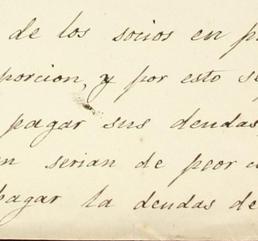 de los socios en p
porcion, y por esto se
pagar sus deudas,
n serian de peor c
pagar la deudas de